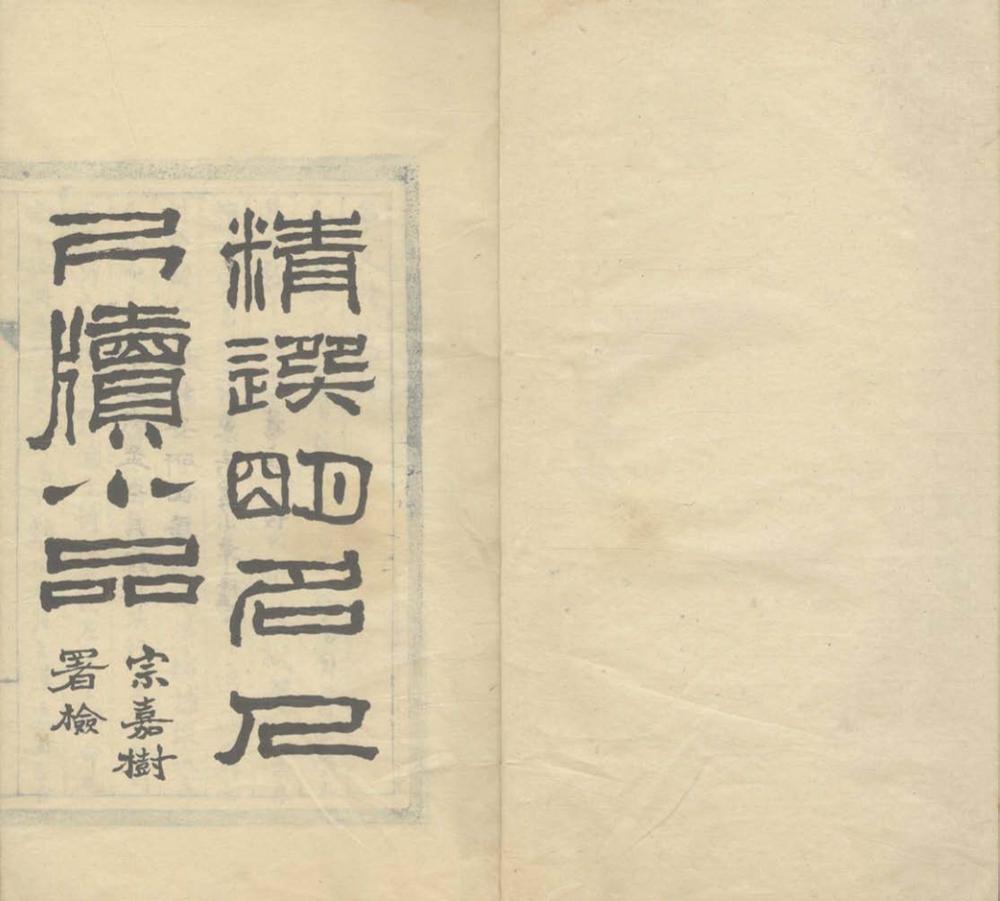 精選明名人
尺牘小品
宗嘉樹
署檢